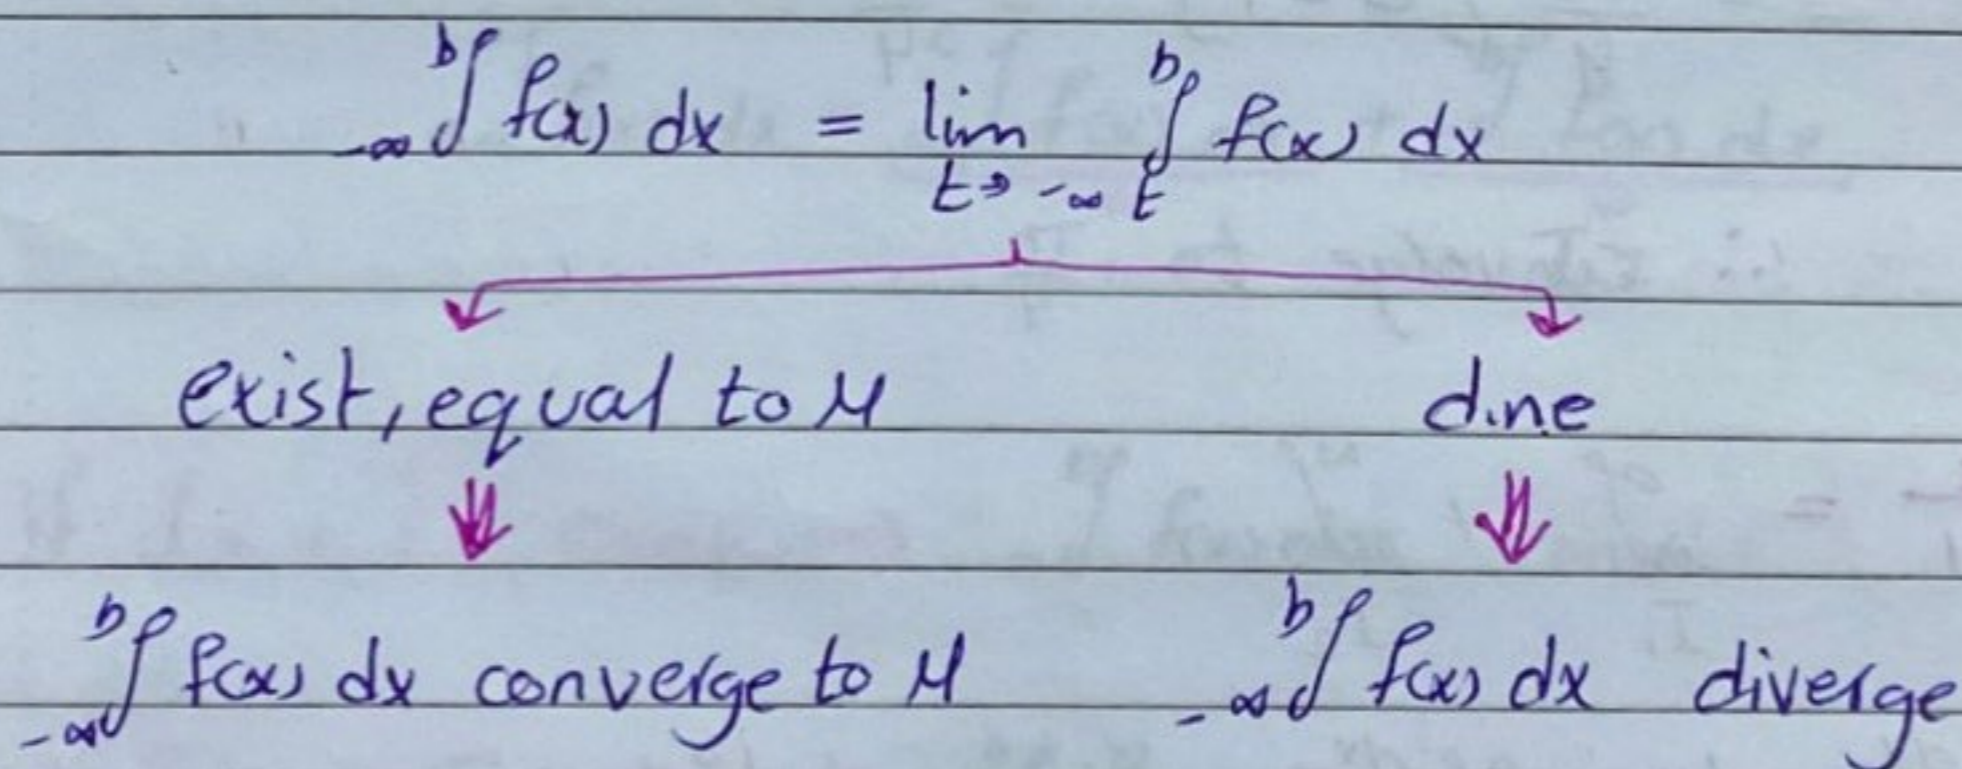 -∞∫b f(x) dx = lim t→-∞ t∫b f(x) dx
exist, equal to M d.n.e
-∞∫b f(x) dx converge to M -∞∫b f(x) dx diverge